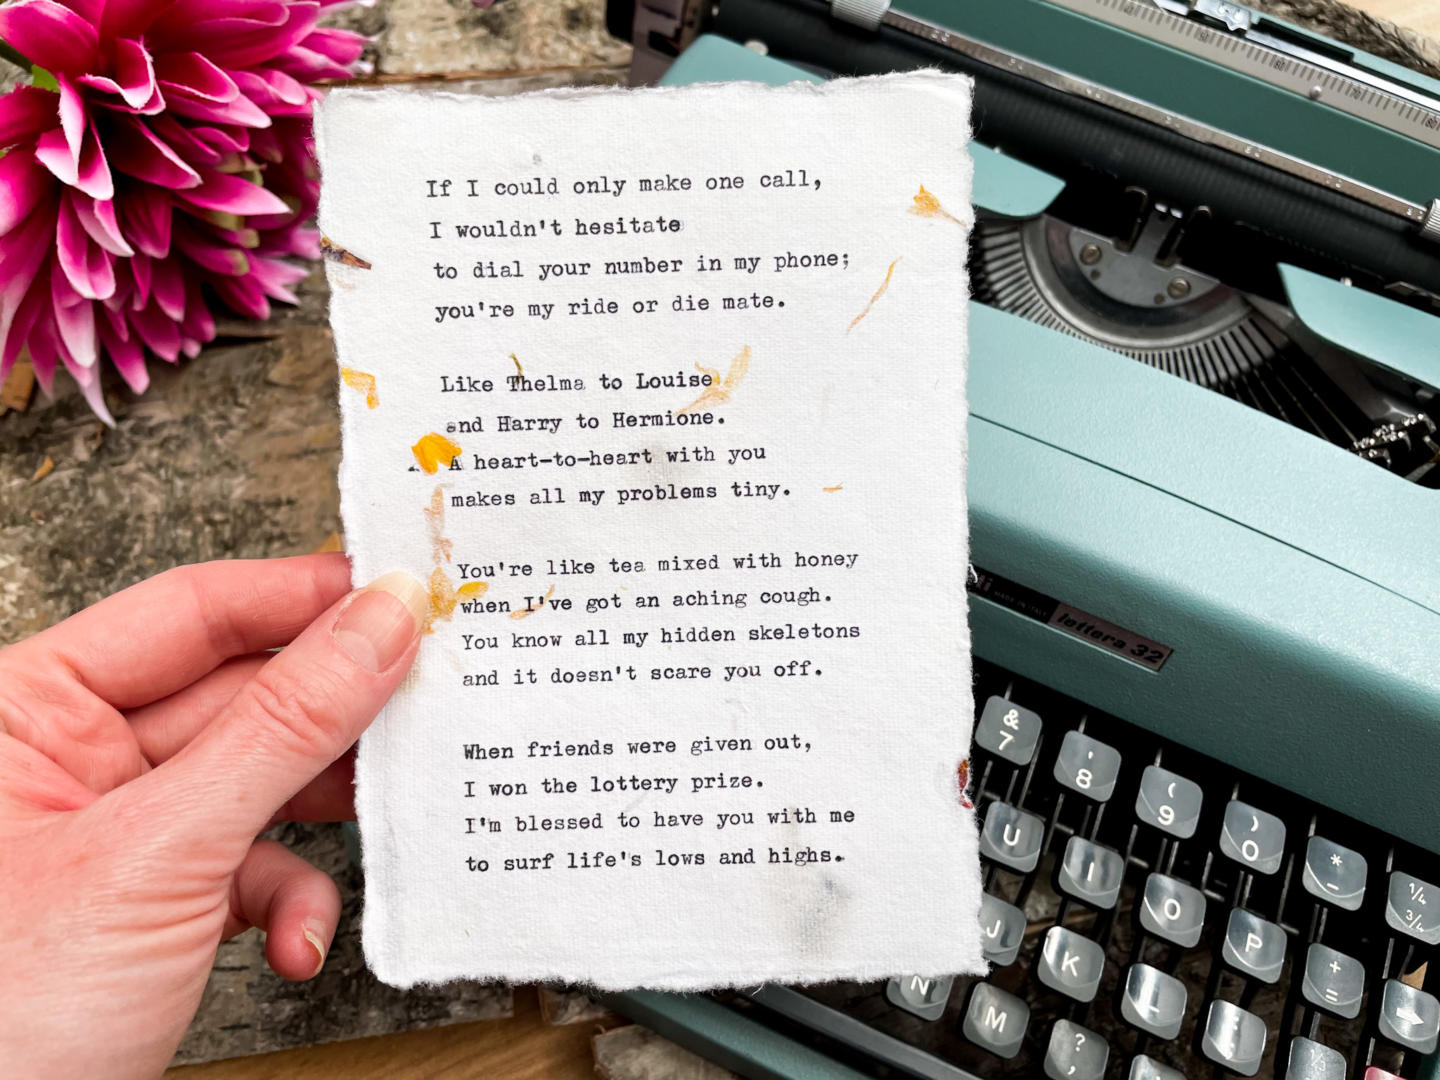 If I could only make one call,
I wouldn't hesitate
to dial your number in my phone;
you're my ride or die mate.
Like Thelma to Louise
and Harry to Hermione.
A heart-to-heart with you
makes all my problems tiny.
You're like tea mixed with honey
when I've got an aching cough.
You know all my hidden skeletons
and it doesn't scare you off.
When friends were given out,
I won the lottery prize.
I'm blessed to have you with me
to surf life's lows and highs.
MADE IN ITALY
lettera 32
& 7
' 8
( 9
) 0
* -
1/4 3/4
U
I
O
P
+ =
J
K
L
N
M
? ,